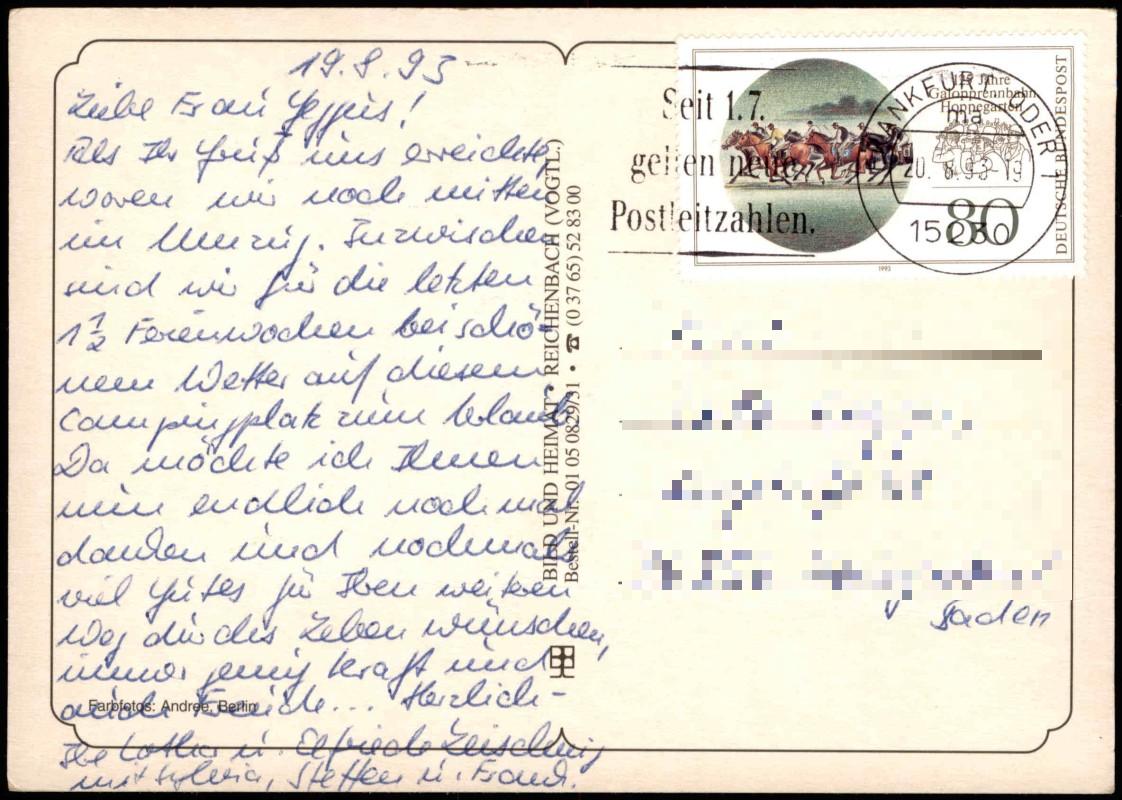 19.8.93
Liebe Frau
Als Ihr Gruß uns erreichte,
waren wir noch mitten
im Umzug. Inzwischen
sind wir für die letzten
1 1/2 Ferienwochen bei schö-
nem Wetter auf diesem
Campingplatz zum Urlaub.
Da möchte ich Ihnen
nun endlich noch mal
danken und nochmals
viel Gutes für Ihren weiteren
Weg durchs Leben wünschen,
immer genug Kraft und
auch Freude... Herzlich-
Ihre Lothar u. Elfriede
mit Sylvia, Steffen u. Frank.
Farbfotos: Andree, Berlin
BILD UND HEIMAT • REICHENBACH (VOGTL.)
Bestell-Nr. 01 05 0829/31 • ☎ (0 37 65) 52 83 00
Seit 1.7.
gelten neue
Postleitzahlen.
FRANKFURT (ODER) 1
ma
20. 8.93-19
15230
125 Jahre
Galopprennbahn
Hoppegarten
80
DEUTSCHE BUNDESPOST
1993
Baden